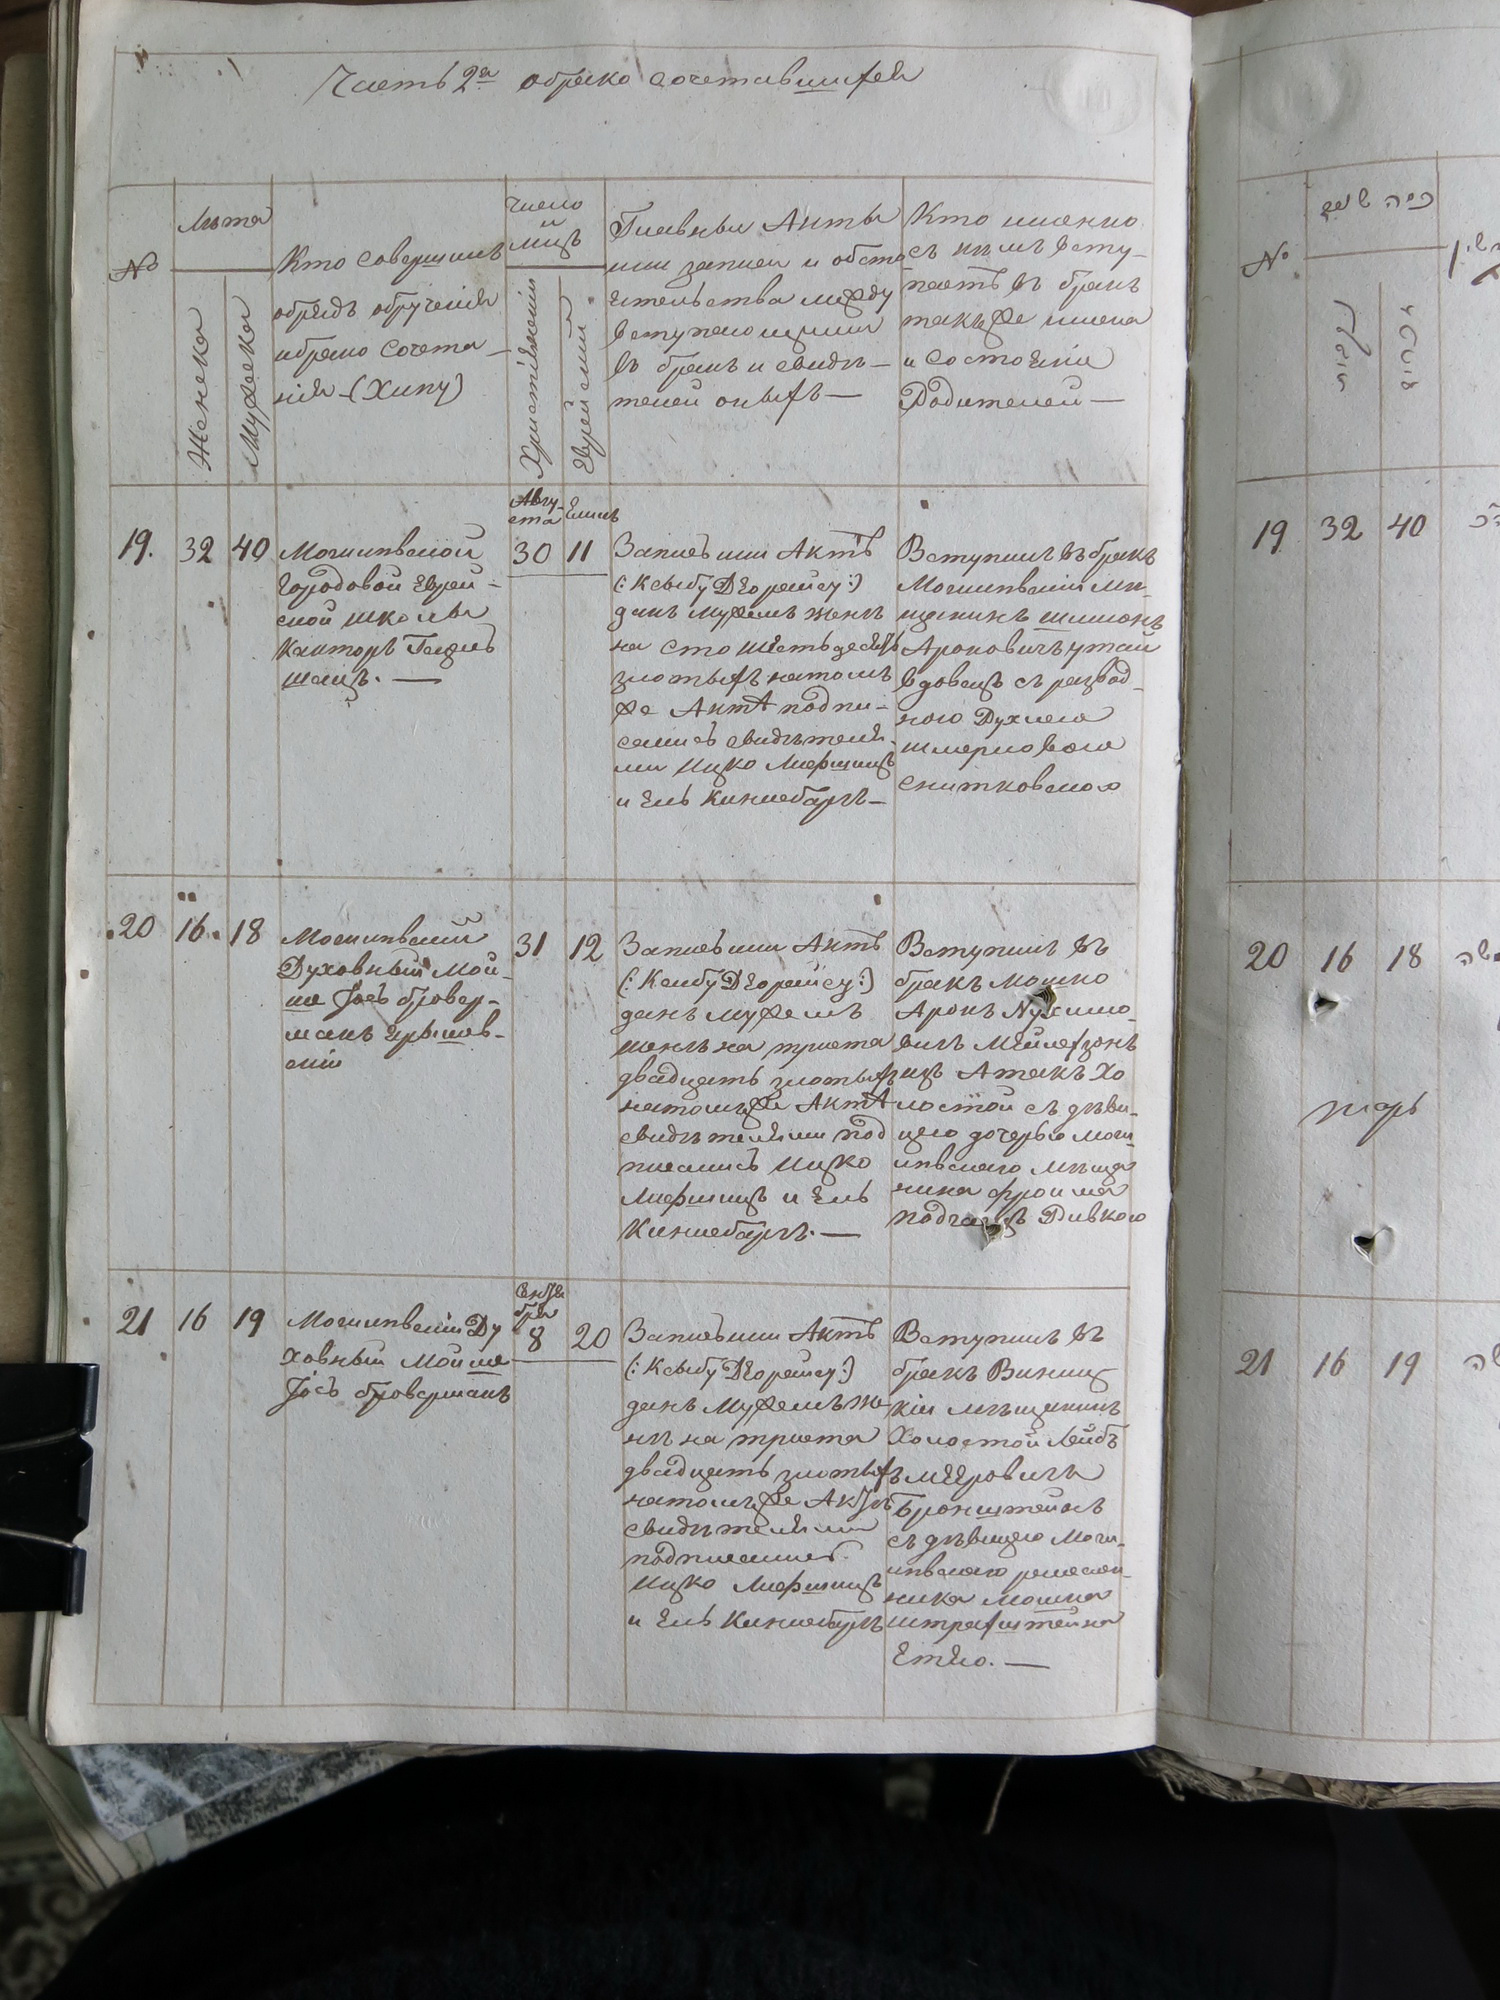 Часть 2я обрако сочетавшихся
№
Лѣта
Женска
Мужеска
Кто совершилъ
обрядъ обрученія
ибрако сочета-
нія - (Хипу)
число
и
мцъ
Христіянскій
Еврейскій
Главныя Акты
или записи и обсто
ятельства между
вступающими
въ бракъ и свидѣ-
телей оныхъ —
Кто именно
съ кимъ всту-
паетъ въ бракъ
такъже имена
и состоянія
Родителей —
19.
32
40
Могилевской
городовой еврей-
ской школы
Канторъ
шацъ. —
Авгу-
ста
30
Елиль
11
Запись или Актъ
(: Ксыбу Деорейсу :)
данъ мужемъ женѣ
на сто шестьдесятъ
злотыхъ натомъ
же Актѣ подпи-
сались свидѣтеля-
ми Ицко Лифшицъ
и Ель
Вступилъ въ бракъ
Могилевскій мѣ-
щанинъ Шлиомъ
Ароновичъ
вдовецъ съ развод-
ною Духнею
шмерковою
снитковскою
20
16
18
Могилевскій
Духовный Мой-
ше Іось бровер-
манъ ярышев-
скій
31
12
Запись или Актъ
(: Ксыбу Деорейсу :)
данъ мужемъ
женѣ на триста
двадцать злотыхъ
натомъже Актѣ
свидѣтелями под
писались Ицко
Лифшицъ и Ель
Вступилъ въ
бракъ Мошко
Аронъ Нухимо-
вичъ
изъ Атакъ Хо
лостой съ дѣви-
цею дочерью моги
левского мѣща
нина фроима
Ривкою
21
16
19
Могилевскій Ду
ховный Мойше
Іось броверманъ
Сентя
бря
8
20
Запись или Актъ
(: Ксыбу Деорейсу :)
данъ мужемъ же
нѣ на триста
двадцать злотыхъ
натомъже Актѣ
свидѣтелями
подписались
Ицко Лифшицъ
и Ель
Вступилъ въ
бракъ Винниц
кій мѣщанинъ
Холостой Лейбъ
меeровичъ
Бронштейнъ
съ дѣвицею Моги-
левского ремеслен-
ника мошка
штрахштейна
Етею. —
№
19
32
40
20
16
18
21
16
19